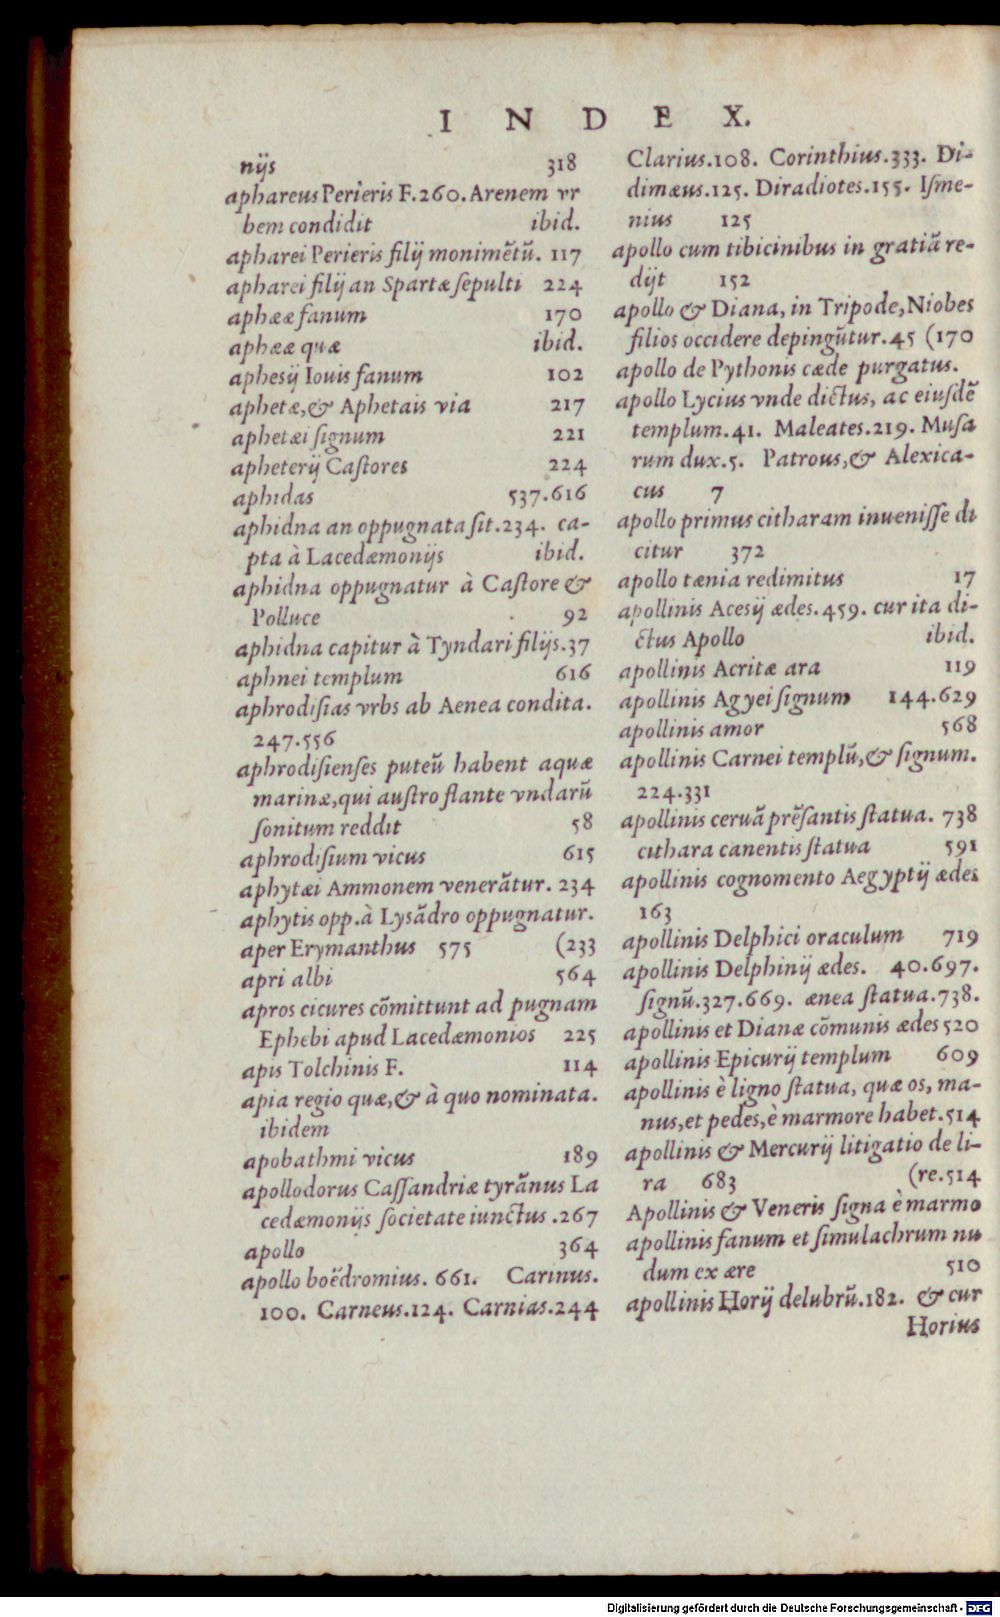 INDEX.
nijs 318
aphareus Perieris F.260. Arenem vr
bem condidit ibid.
apharei Perieris filij monimẽtũ. 117
apharei filij an Spartæ sepulti 224
aphææ fanum 170
aphææ quæ ibid.
aphesij Iouis fanum 102
aphetæ, & Aphetais via 217
aphetæi signum 221
apheterij Castores 224
aphidas 537.616
aphidna an oppugnata sit.234. ca-
pta à Lacedæmonijs ibid.
aphidna oppugnatur à Castore &
Polluce 92
aphidna capitur à Tyndari filijs.37
aphnei templum 616
aphrodisias vrbs ab Aenea condita.
247.556
aphrodisienses puteũ habent aquæ
marinæ, qui austro flante vndarũ
sonitum reddit 58
aphrodisium vicus 615
aphytæi Ammonem venerãtur. 234
aphytis opp. à Lysãdro oppugnatur.
aper Erymanthus 575 (233
apri albi 564
apros cicures cõmittunt ad pugnam
Ephebi apud Lacedæmonios 225
apis Tolchinis F. 114
apia regio quæ, & à quo nominata.
ibidem
apobathmi vicus 189
apollodorus Cassandriæ tyrãnus La
cedæmonijs societate iunctus .267
apollo 364
apollo boëdromius. 661. Carinus.
100. Carneus.124. Carnias.244
Clarius.108. Corinthius.333. Di-
dimæus.125. Diradiotes.155. Isme-
nius 125
apollo cum tibicinibus in gratiã re-
dijt 152
apollo & Diana, in Tripode, Niobes
filios occidere depingũtur.45 (170
apollo de Pythonis cæde purgatus.
apollo Lycius vnde dictus, ac eiusdẽ
templum.41. Maleates.219. Musa
rum dux.5. Patrous, & Alexica-
cus 7
apollo primus citharam inuenisse di
citur 372
apollo tænia redimitus 17
apollinis Acesij ædes.459. cur ita di-
ctus Apollo ibid.
apollinis Acritæ ara 119
apollinis Agyei signum 144.629
apollinis amor 568
apollinis Carnei templũ, & signum.
224.331
apollinis ceruã prẽsantis statua. 738
cithara canentis statua 591
apollinis cognomento Aegyptij ædes
163
apollinis Delphici oraculum 719
apollinis Delphinij ædes. 40.697.
signũ.327.669. ænea statua.738.
apollinis et Dianæ cõmunis ædes 520
apollinis Epicurij templum 609
apollinis è ligno statua, quæ os, ma-
nus, et pedes, è marmore habet.514
apollinis & Mercurij litigatio de li-
ra 683 (re.514
Apollinis & Veneris signa è marmo
apollinis fanum et simulachrum nu
dum ex ære 510
apollinis Horij delubrũ.182. & cur
Horius
Digitalisierung gefördert durch die Deutsche Forschungsgemeinschaft - DFG